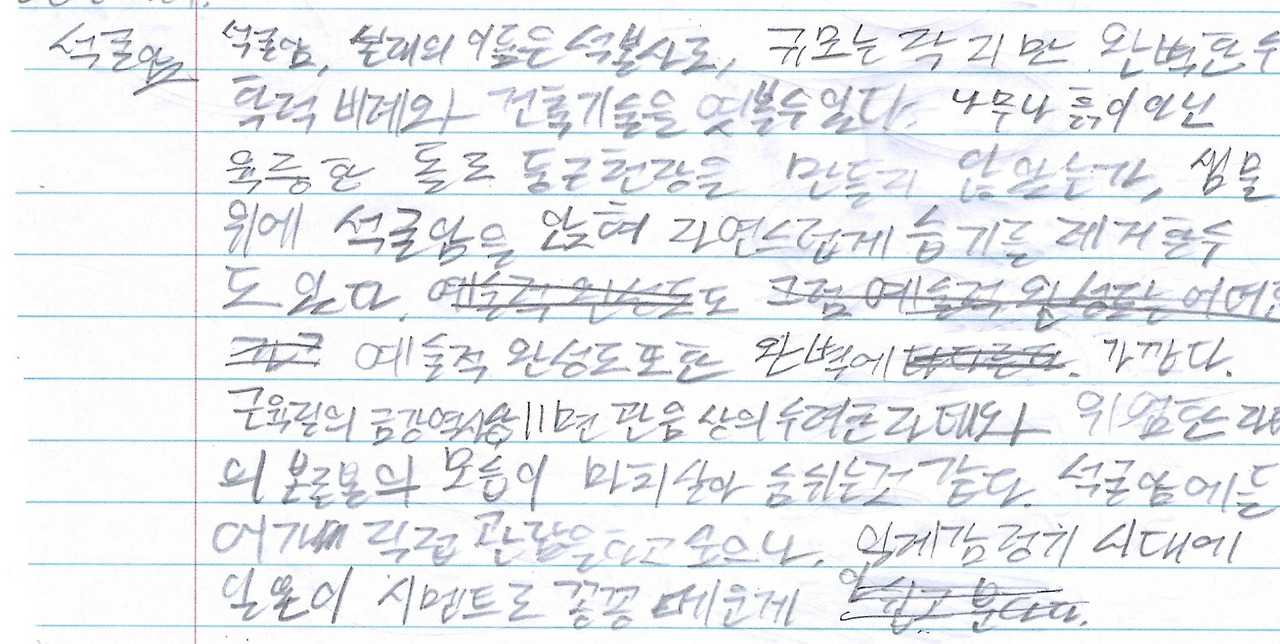 석굴암 석굴암, 본래의 이름은 석불사로, 규모는 작지만 완벽한 수
학적 비례와 건축기술을 엿볼수있다. 나무나 흙이 아닌
육중한 돌로 둥근천장을 만들지 않았는가, 샘물
위에 석굴암을 앉혀 자연스럽게 습기를 제거할수
도 있다. 예술적 완성도도 그럼 예술적 완성도는
예술적 완성도또한 완벽에 가깝다.
근육질의 금강역사상 11면 관음상의 수려한 자태와 위엄한
의 본존불의 모습이 마치살아 숨쉬는것 같다. 석굴암에들
어가 직접 관람을하고 싶으나, 일제강점기 시대에
일본이 시멘트로 꽁꽁 메운게 아쉽고